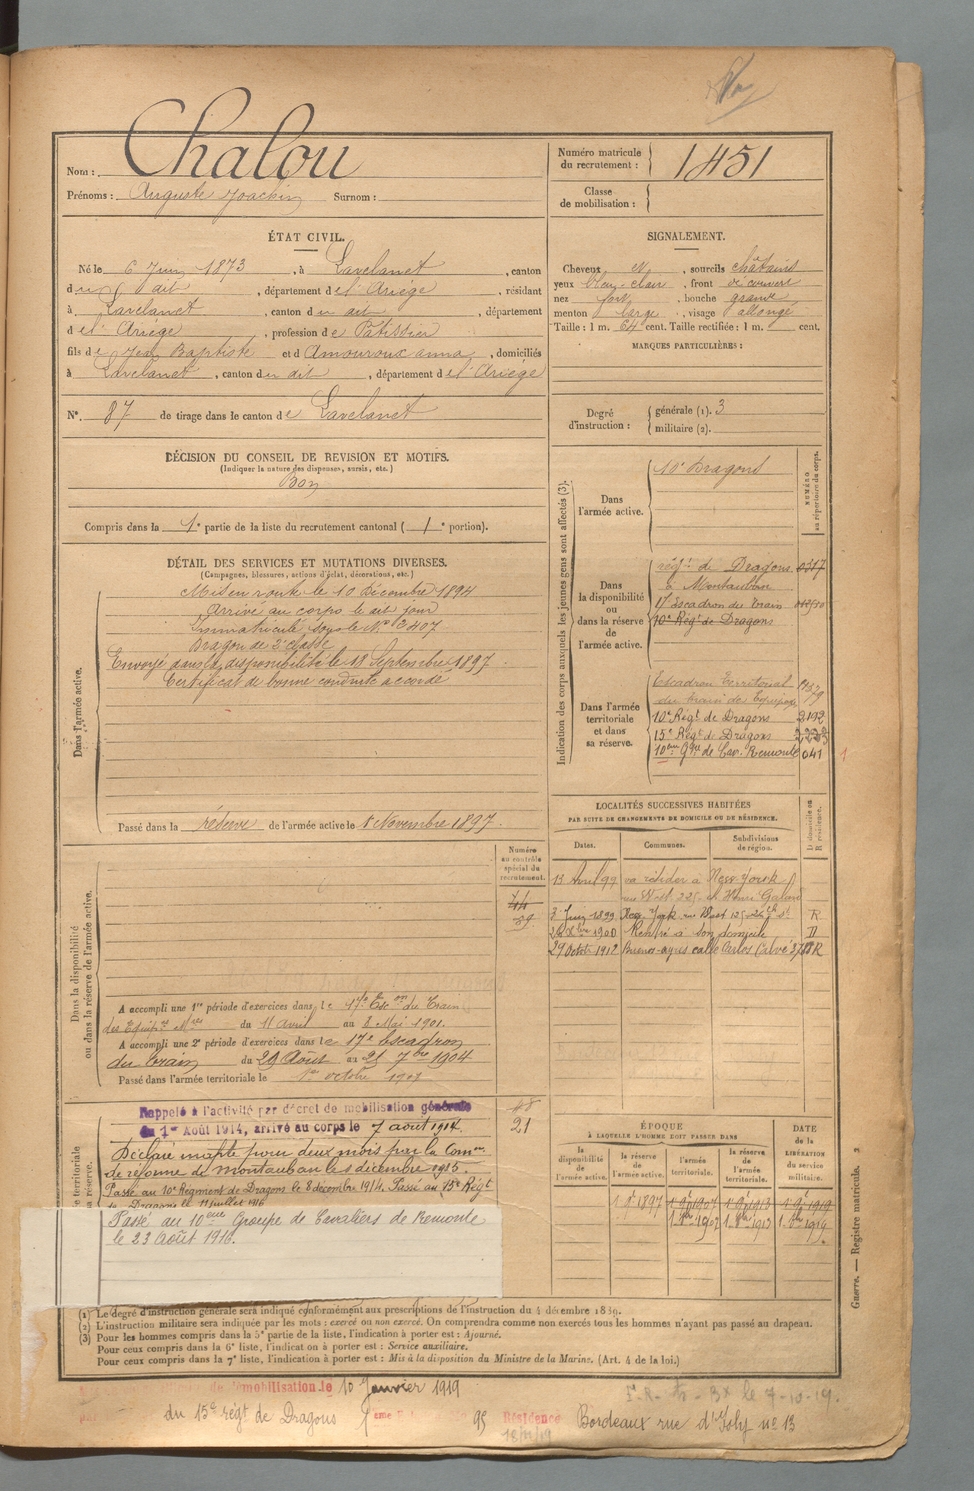 Nom : Chalou
Prénoms : Auguste Joachim Surnom :
Numéro matricule du recrutement : 1451
Classe de mobilisation :
ÉTAT CIVIL.
Né le 6 Juin 1873, à Lavelanet, canton
du dit, département de l'Ariège, résidant
à Lavelanet, canton du dit, département
de l'Ariège, profession de Pâtissier
fils de Jean Baptiste et d Amouroux anna, domiciliés
à Lavelanet, canton du dit, département de l'Ariège
N° 87 de tirage dans le canton de Lavelanet
SIGNALEMENT.
Cheveux et, sourcils châtains
yeux bleu-clair, front découvert
nez fort, bouche grande
menton large, visage allongé
Taille : 1 m. 64 cent. Taille rectifiée : 1 m. cent.
MARQUES PARTICULIÈRES :
Degré d'instruction : générale (1). 3
militaire (2).
DÉCISION DU CONSEIL DE REVISION ET MOTIFS.
(Indiquer la nature des dispenses, sursis, etc.)
Bon
Compris dans la 1e partie de la liste du recrutement cantonal ( 1e portion).
DÉTAIL DES SERVICES ET MUTATIONS DIVERSES.
(Campagnes, blessures, actions d'éclat, décorations, etc.)
Dans l'armée active.
Mis en route le 10 Décembre 1894
Arrivé au corps le dit jour
Immatriculé sous le N° 3407
Dragon de 2e classe
Envoyé dans la disponibilité le 18 Septembre 1897.
Certificat de bonne conduite accordé
Passé dans la réserve de l'armée active le 1 Novembre 1897.
Indication des corps auxquels les jeunes gens sont affectés (3).
NUMÉRO au répertoire du corps.
Dans l'armée active.
10e Dragons
Dans la disponibilité ou dans la réserve de l'armée active.
régt de Dragons 0317
à Montauban
17 Escadron du Train
10e Régt de Dragons
Dans l'armée territoriale et dans sa réserve.
Escadron Territorial
du train des Equipages
10e Régt de Dragons 2192
15e Régt de Dragons
10ème Gpe de Cav. Remonte 041 1
LOCALITÉS SUCCESSIVES HABITÉES
PAR SUITE DE CHANGEMENTS DE DOMICILE OU DE RÉSIDENCE.
Dates. Communes. Subdivisions de région. D domicile ou R résidence.
13 Avril 99 va résider à New-Yorck
3 Juin 1899 New-York R
1900 Rentré à son domicile D
29 Octob 1912 Buenos-ayres calle Carlos Calvo R
Numéro au contrôle spécial du recrutement.
44
39
Dans la disponibilité ou dans la réserve de l'armée active.
A accompli une 1re période d'exercices dans le 17e Escon du Train
des Equip. Mres du 11 avril au 8 Mai 1901.
A accompli une 2e période d'exercices dans le 17e Escadron
du train du 29 Août au 21 7bre 1904
Passé dans l'armée territoriale le 1er octobre 1907
48
21
Rappelé à l'activité par décret de mobilisation générale
du 1er Août 1914, arrivé au corps le 7 août 1914.
Déclaré inapte pour deux mois par la Comon
de réforme de Montauban le 8 décembre 1915.
Passé au 10e Régiment de Dragons le 8 décembre 1914. Passé au 15e Régt
de Dragons le 11 juillet 1916
Passé au 10ème Groupe de Cavaliers de Remonte
le 23 Août 1916.
ÉPOQUE
À LAQUELLE L'HOMME DOIT PASSER DANS
DATE de la LIBÉRATION du service militaire.
la disponibilité de l'armée active. la réserve de l'armée active. l'armée territoriale. la réserve de l'armée territoriale.
1 9e 1897 1 9e 1907 1 9e 1913 1 9e 1919
1 8re 1907 1 8re 1913 1 8re 1919.
Guerre. — Registre matricule. 2
(1) Le degré d'instruction générale sera indiqué conformément aux prescriptions de l'instruction du 4 décembre 1889.
(2) L'instruction militaire sera indiquée par les mots : exercé ou non exercé. On comprendra comme non exercés tous les hommes n'ayant pas passé au drapeau.
(3) Pour les hommes compris dans la 5e partie de la liste, l'indication à porter est : Ajourné.
Pour ceux compris dans la 6e liste, l'indication à porter est : Service auxiliaire.
Pour ceux compris dans la 7e liste, l'indication à porter est : Mis à la disposition du Ministre de la Marine. (Art. 4 de la loi.)
démobilisation le 10 Janvier 1919
du 15e régt de Dragons 95 Résidence Bordeaux rue d'Joly n° 13